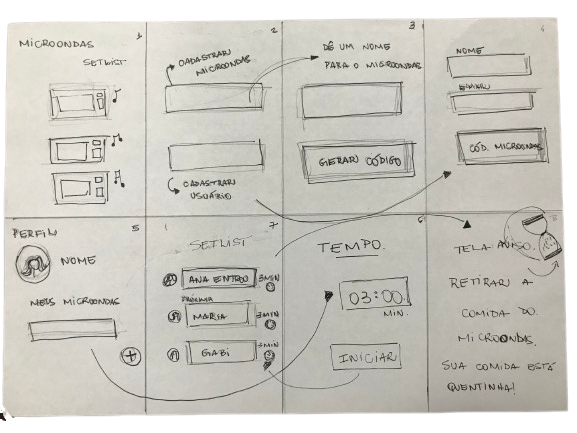 1
MICROONDAS
SETLIST
2
CADASTRAR
MICROONDAS
CADASTRAR
USUÁRIO
3
DÊ UM NOME
PARA O MICROONDAS
GERAR CÓDIGO
4
NOME
CÓD. MICROONDAS
5
PERFIL
NOME
MEUS MICROONDAS
+
7
SETLIST
ANA ENTROU 3MIN
MARIA 3MIN
GABI 3MIN
6
TEMPO.
03:00
MIN.
INICIAR
8
TELA AVISO.
RETIRAR A
COMIDA DO
MICROONDAS.
SUA COMIDA ESTÁ
QUENTINHA!